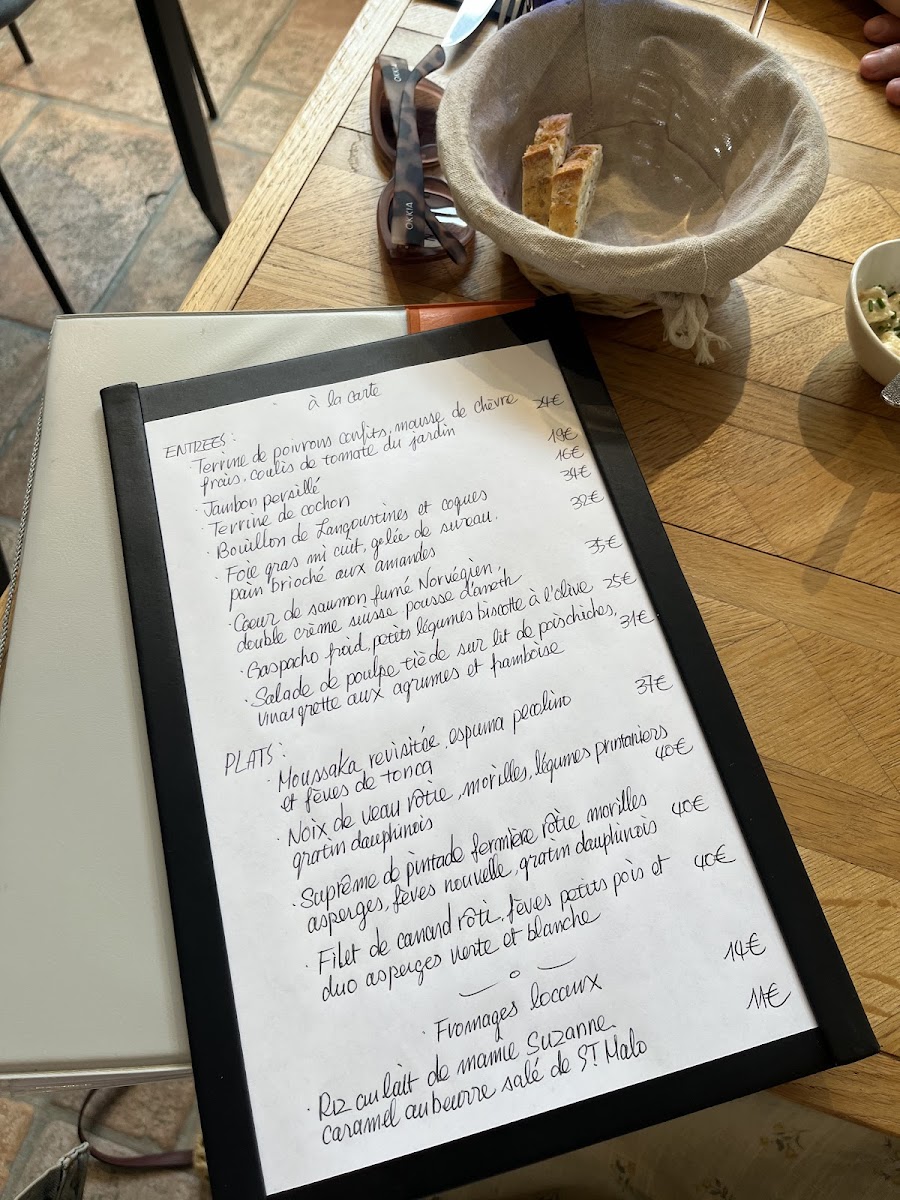 OKKIA
OKKIA
à la carte
ENTREES:
· Terrine de poivrons confits, mousse de chèvre 24€
frais, coulis de tomate du jardin
· Jambon persillé 19€
· Terrine de cochon 16€
· Bouillon de Langoustines et coques 34€
· Foie gras mi cuit, gelée de sureau, 32€
pain brioché aux amandes
· Coeur de saumon fumé Norvégien, 35€
double crème suisse pousse d'aneth
· Gaspacho froid, petits légumes biscotte à l'olive 25€
· Salade de poulpe tiède sur lit de poischiches, 31€
vinaigrette aux agrumes et framboise
PLATS:
· Moussaka revisitée, espuma pecolino 37€
et fèves de tonca
· Noix de veau rôtie, morilles, légumes printaniers 40€
gratin dauphinois
· Suprême de pintade fermière rôtie morilles 40€
asperges, fèves nouvelle, gratin dauphinois
· Filet de canard rôti, fèves petits pois et 40€
duo asperges verte et blanche
· Fromages locaux 14€
· Riz au lait de mamie Suzanne 11€
caramel au beurre salé de ST Malo